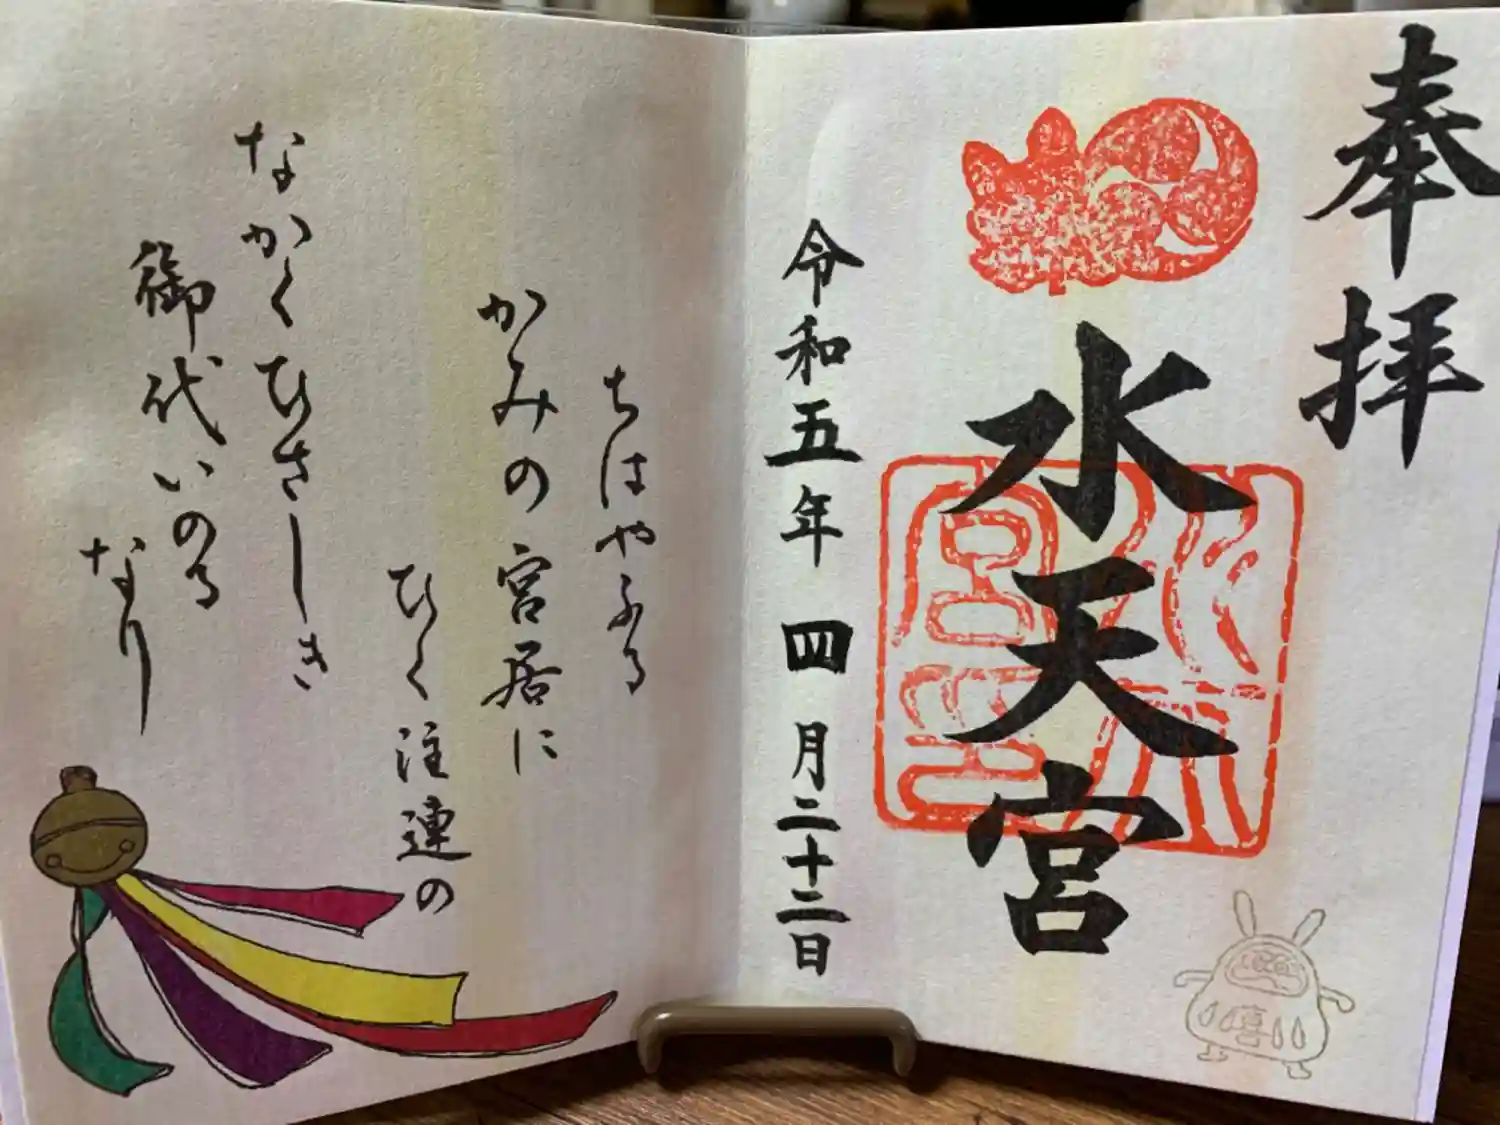 奉拝
水天宮
令和五年四月二十二日
ちはやふる
かみの宮居に
ひく注連の
なかくひさしき
御代いのる
なり